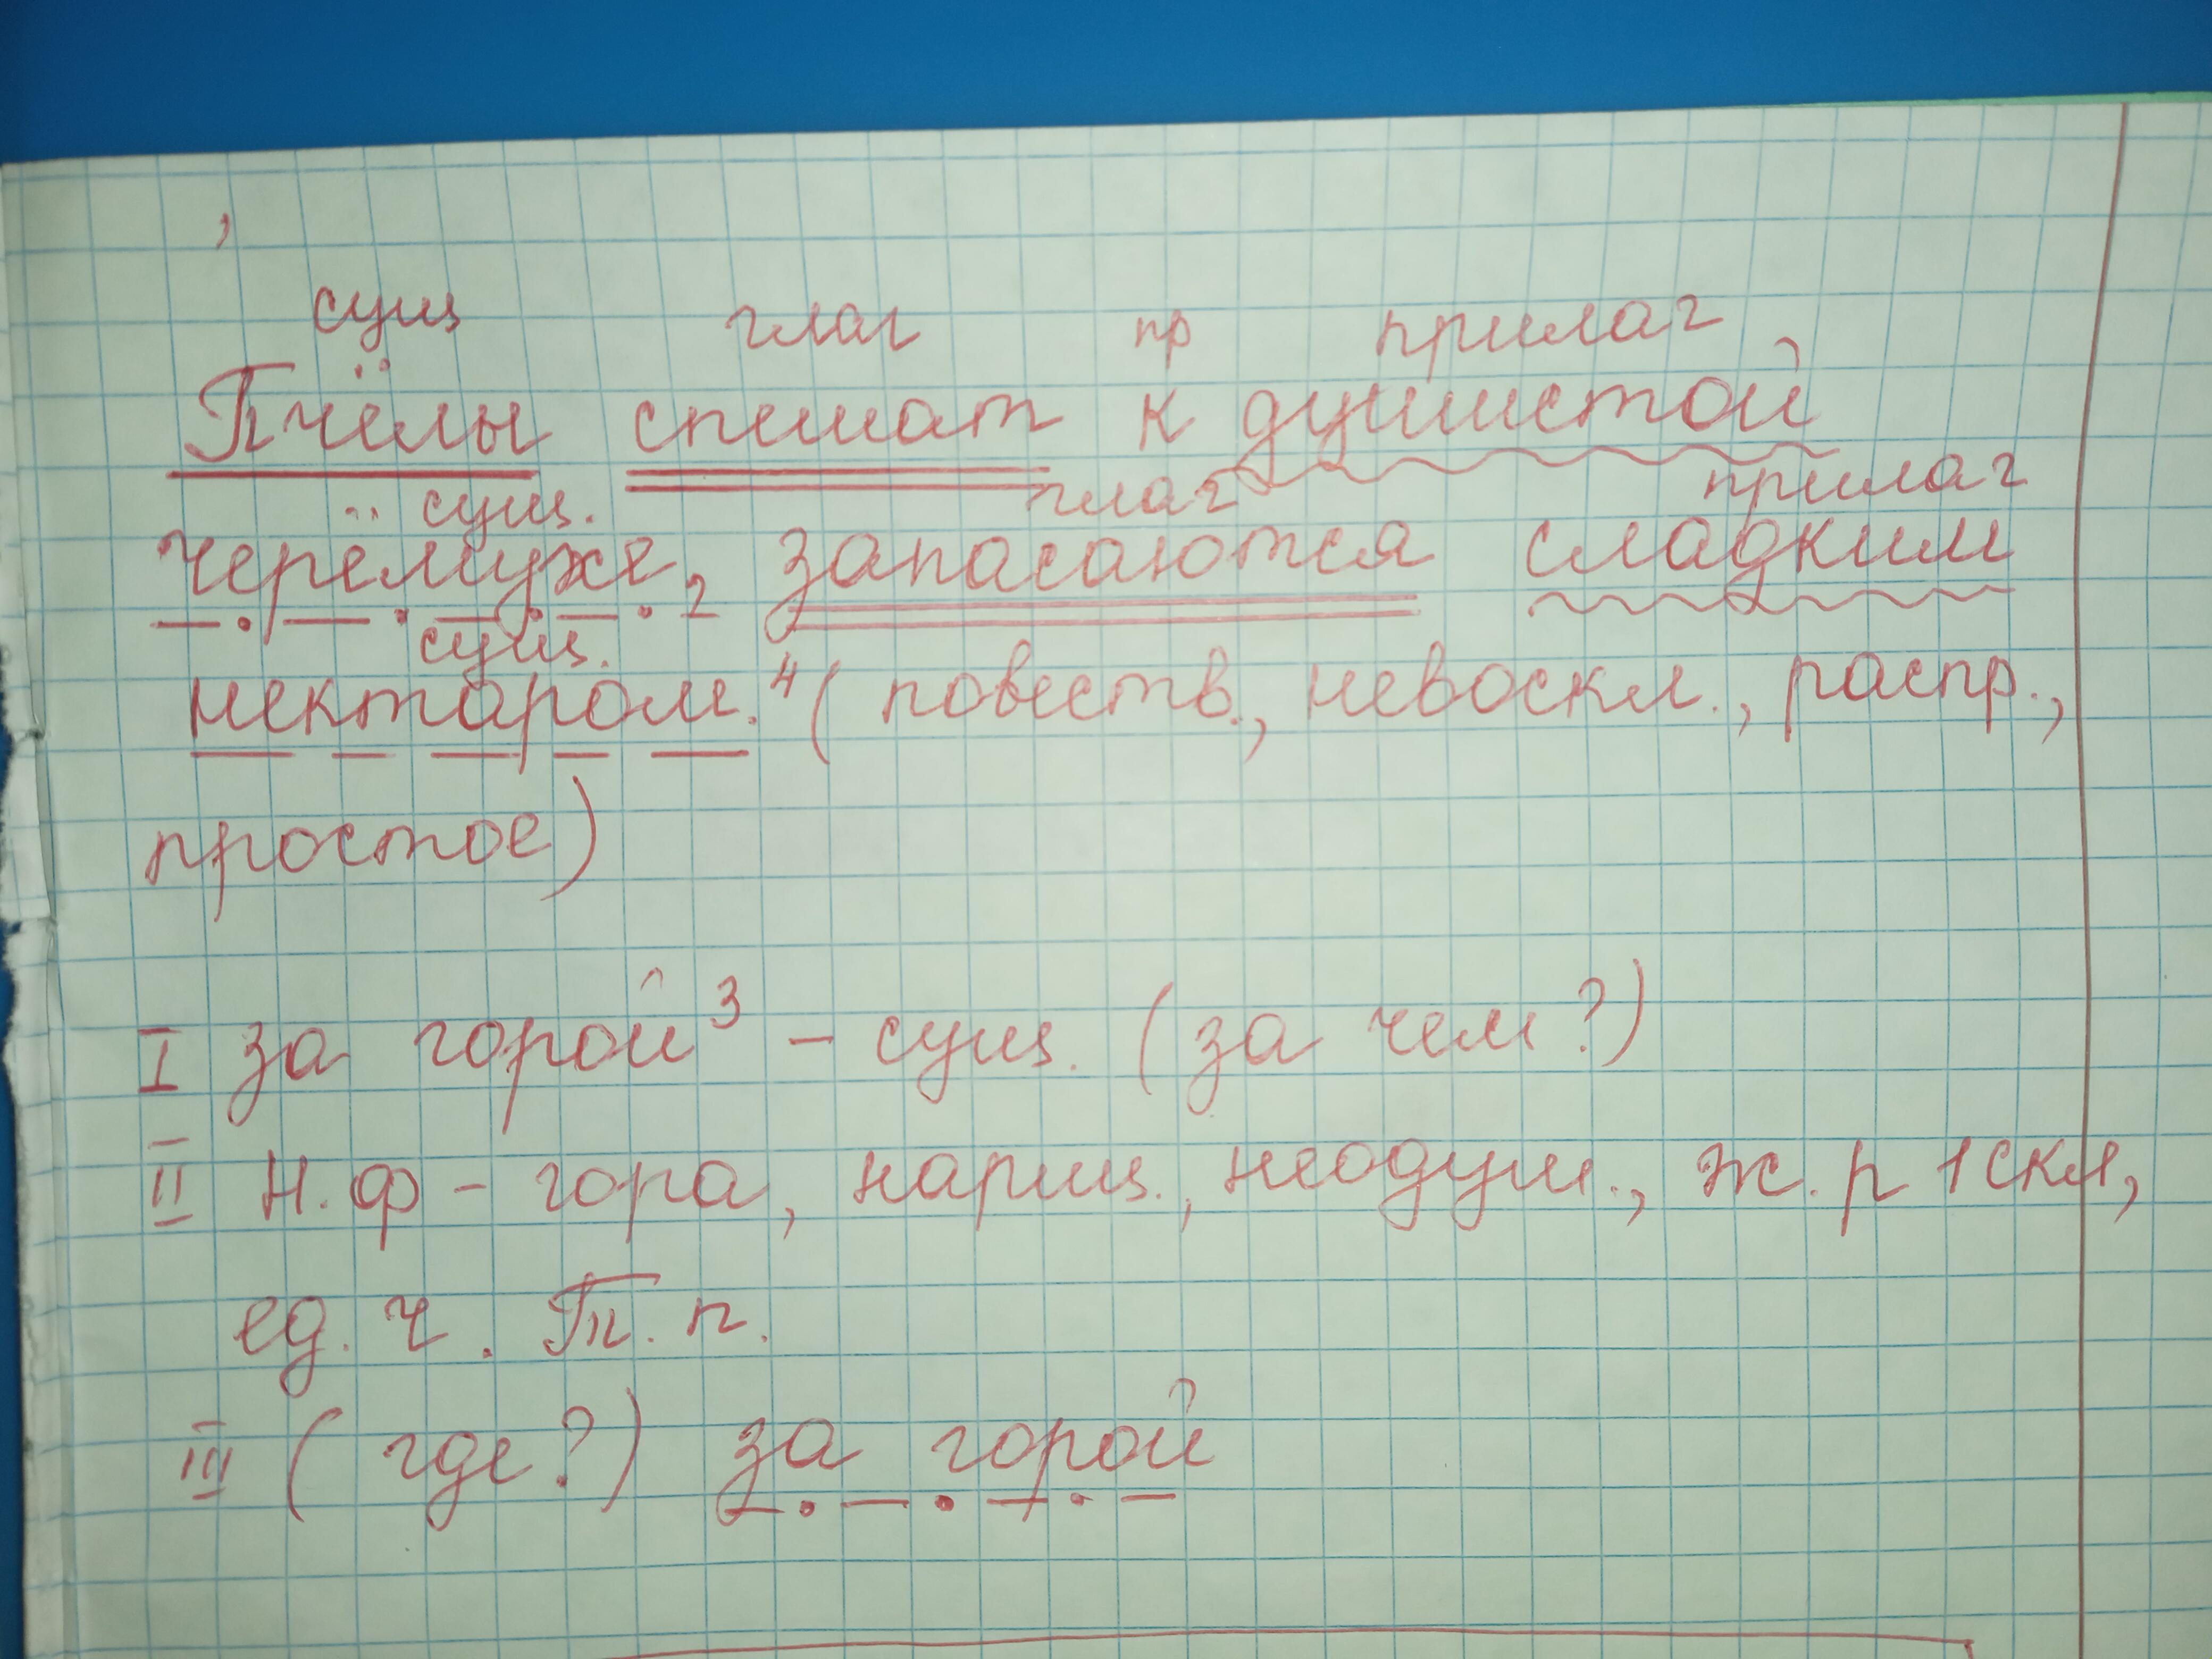 сущ глаг пр прилаг
Пчёлы спешат к душистой
сущ. глаг прилаг
черёмухе, запасаются сладким
сущ.
нектаром.⁴ (повеств., невоскл., распр.,
простое)
I за горой³ – сущ. (за чем?)
II Н.ф – гора, нариц., неодуш., ж.р 1скл,
ед. ч. Т.п.
III (где?) за горой